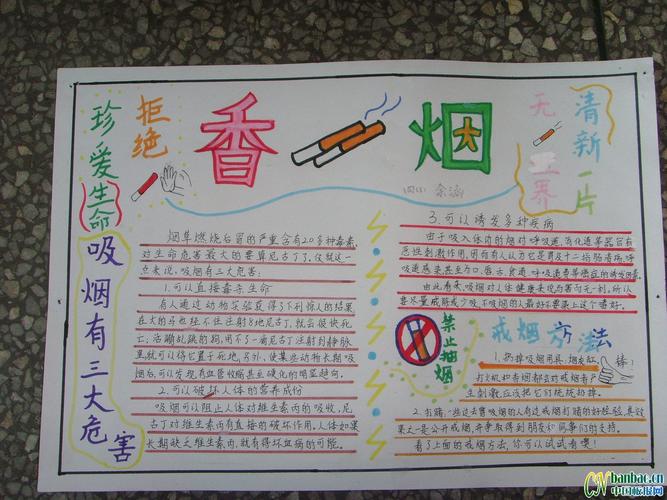 珍爱生命
拒绝
香烟
无
烟
世界
清新一片
吸烟有三大危害
四(1)
烟草燃烧后冒的严重含有20多种毒素,
对生命危害最大的要算尼古丁了,仅就这一
点来说,吸烟有三大危害:
1.可以直接毒杀生命
有人通过动物实验获得了下列惊人的结果,
在大的马也经不住注射8地尼古丁,就会很快死
亡;活蹦乱跳的狗,用不了一滴尼古丁注射到静脉
里,就可以将它置于死地,另外,使某些动物长期吸
烟后,可以发现有血管收缩甚至硬化的明显趋向。
2.可以破坏人体的营养成份
吸烟可以阻止人体对维生素丙的吸收,尼
古丁对维生素丙有直接的破坏作用,人体如果
长期缺乏维生素丙,就有得坏血病的可能。
3.可以诱发多种疾病
由于吸入体内的烟对呼吸道、消化道等器官有
恶性刺激作用,因而有人认为它是胃及十二指肠溃疡,呼
吸道感染甚至
此看来,吸烟对人体健康来说为害可无一利。所以
要尽量戒除或少吸,不吸烟的人最好不要染上这个嗜好。
禁止抽烟
戒烟方法
棒!
1.扔掉吸烟用具:烟灰缸,
打火机和香烟都会对戒烟者产
生刺激,应该把它们统统扔掉。
吸烟的人有过戒烟打赌的好经验,其效
果之一是公开戒烟,并争取得到朋友和同事们的支持。
看了上面的戒烟方法,你可以试试看喽!
CNbanbao.cn
中国板报网